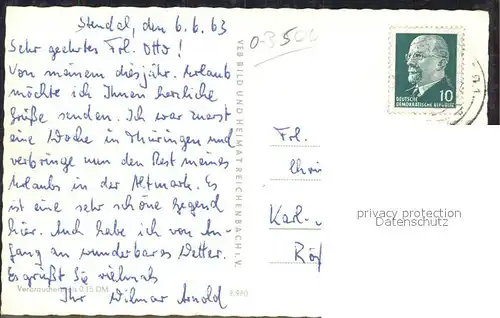 Stendal, den 6.6.63
Sehr geehrtes Frl. Otto!
Von meinem diesjähr. Urlaub
möchte ich Ihnen herzliche
Grüße senden. Ich war zuerst
eine Woche in Thüringen und
verbringe nun den Rest meines
Urlaubs in der Altmark. Es
ist eine sehr schöne Gegend
hier. Auch habe ich von An-
fang an wunderbares Wetter.
Es grüßt Sie vielmals
Ihr Dilmar Arnold
Verbraucherpreis 0,15 DM
VEB BILD UND HEIMAT REICHENBACH I. V.
0-3500
10
DEUTSCHE
DEMOKRATISCHE REPUBLIK
Frl.
Karl-
privacy protection
Datenschutz